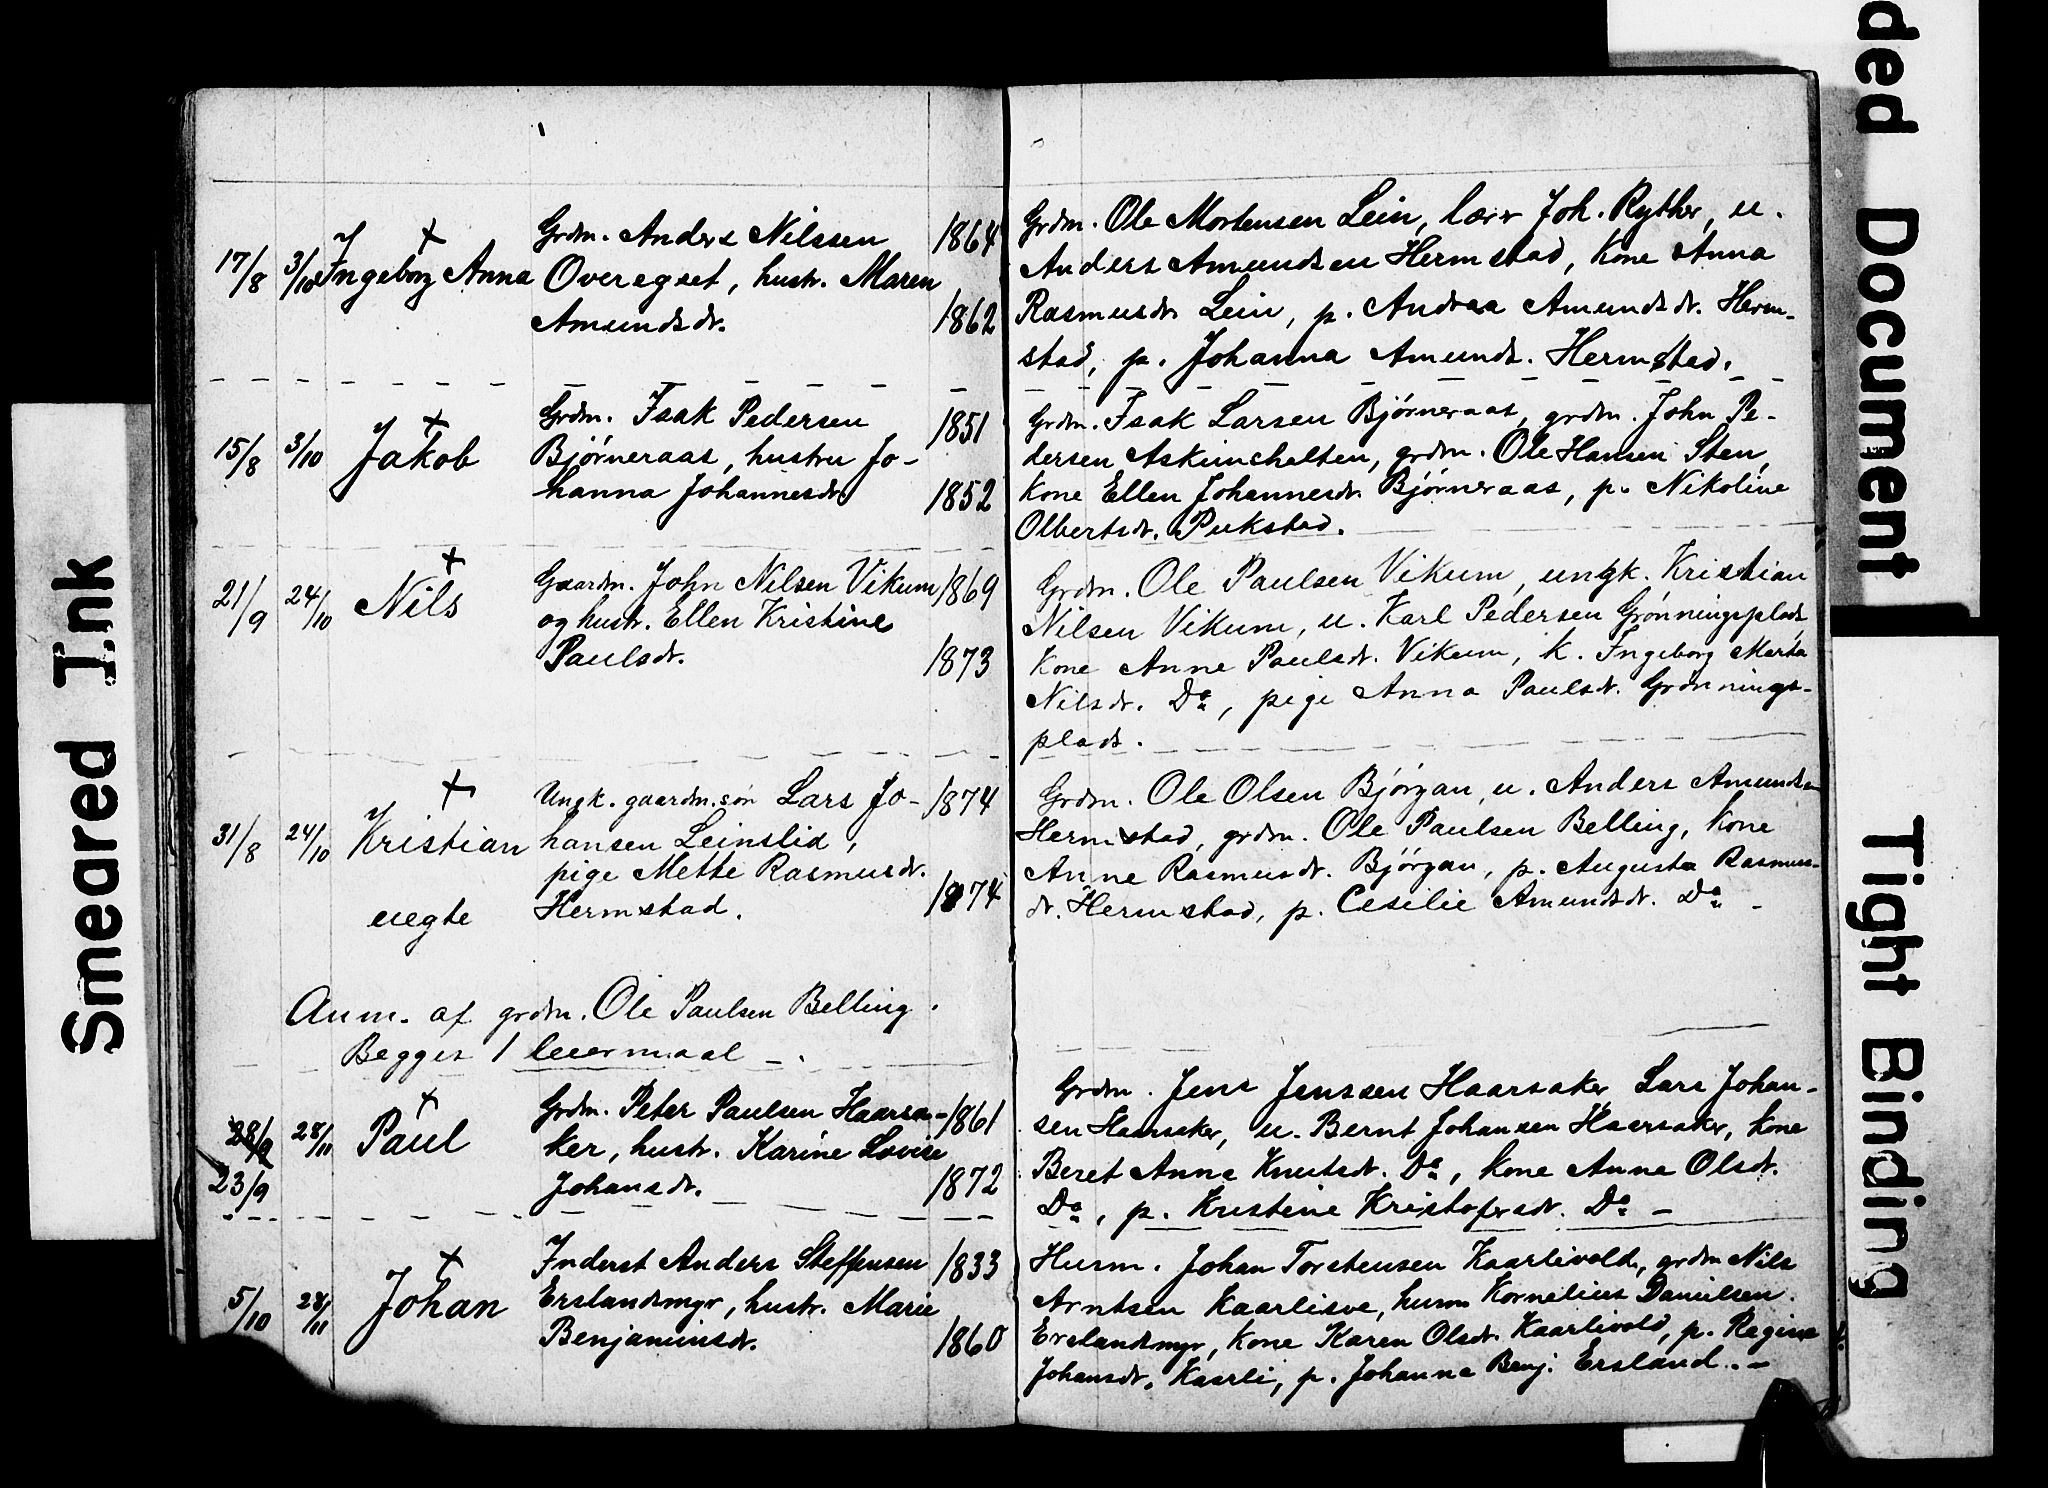 17/8 3/10 Ingeborg Anna
Grdm. Anders Nilssen 1864
Overegset, hustr. Maren
Amundsdr. 1862
Grdm. Ole Mortensen Lein, lærer Joh. Ryther, u.
Anders Amundsen Hermstad, Kone Anna
Rasmusdr. Lein, p. Andrea Amundsdr. Herm-
stad, p. Johanna Amunds. Hermstad.
15/8 3/10 Jakob
Grdm. Isak Pedersen 1851
Bjørneraas, hustru Jo-
hanna Johannesdr. 1852
Grdm. Isak Larsen Bjørneraas, grdm. John Pe-
dersen Askimchalten, grdm. Ole Hansen Sten,
Kone Ellen Johannesdr. Bjørneraas, p. Nikoline
Olbertsdr. Pukstad.
21/9 24/10 Nils
Gaardm. John Nilsen Vikum 1869
og hustr. Ellen Kristine
Paulsdr. 1873
Grdm. Ole Paulsen Vikum, ungk. Kristian
Nilsen Vikum, u. Karl Pedersen Grønningsplads,
Kone Anne Paulsdr. Vikum, k. Ingeborg Marta
Nilsdr. Do, pige Anna Paulsdr. Grønnings-
plads.
31/8 24/10 Kristian
uegte
Ungk. gaardm.søn Lars Jo- 1874
hansen Leinslid,
pige Mette Rasmusdr.
Hermstad. 1874
Grdm. Ole Olsen Bjørgan, u. Anders Amundsen
Hermstad, grdm. Ole Paulsen Belling, Kone
Anne Rasmusdr. Bjørgan, p. Augusta Rasmus-
dr. Hermstad, p. Cesilie Amundsdr. Do -
Anm. af grdm. Ole Paulsen Belling.
Begges 1 leiermaal -.
28/9 28/11 Paul
23/9
Grdm. Peter Paulsen Haarsa- 1861
ker, hustr. Karine Lovise
Johansdr. 1872
Grdm. Jens Jenssen Haarsaker, Lars Johan-
sen Haarsaker, u. Bernt Johansen Haarsaker, Kone
Beret Anna Knutsdr. Do, Kone Anne Olsdr.
Do, p. Kristine Kristofersdr. Do -
5/10 28/11 Johan
Inderst Anders Steffensen 1833
Erslandsmyr, hustr. Marie
Benjaminsdr. 1860
Husm. Johan Torstensen Kaarlivold, grdm Nils
Arntsen Kaarlisve, husm Kornelius Danielsen
Erslandsmyr, Kone Karen Olsdr. Kaarlivold, p. Regine
Johansdr. Kaarli, p. Johanna Benj. Ersland. -
Smeared Ink
ded Document
Tight Binding